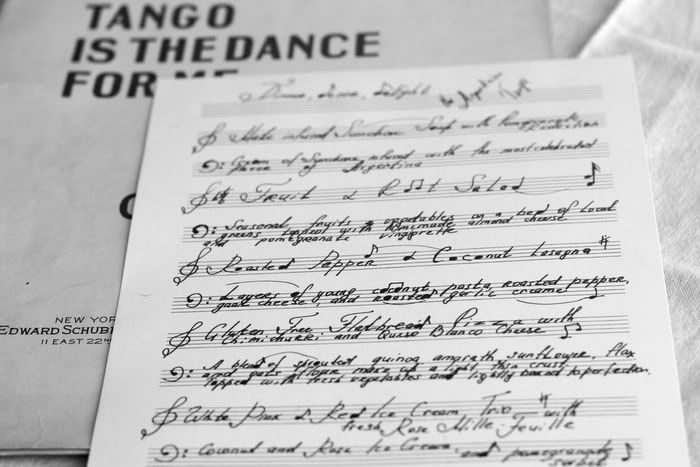 TANGO
IS THE DANCE
FOR ME
NEW YOR
EDWARD SCHUB
11 EAST 22
Dine, wine, delight
Mate infused Sunchoke Soup with Pomegranate
Cream of Sunchoke infused with the most celebrated
of Argentina
Fruit & Root Salad
Seasonal fruits & vegetables on a bed of local
greens topped with homemade almond cheese
and pomegranate vinaigrette
Roasted Pepper & Coconut Lasagna
Layers of young coconut pasta, roasted pepper,
goat cheese, and roasted garlic creme
Gluten Free Flatbread Pizza with
Chimichurri and Queso Blanco Cheese
A blend of sprouted quinoa, amaranth, sunflower, flax
and oats flour make up a light, thin crust
topped with fresh vegetables and lightly baked to perfection.
White Pink & Red Ice Cream Trio with
fresh Rose Mille-Feuille
Coconut and Rose Ice Cream, and pomegranate
sorbet